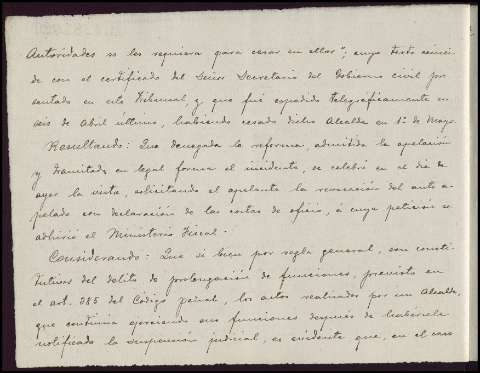 Autoridades se les requiera para cesar en ellas"; cuyo texto coinci-
de con el certificado del Señor Secretario del Gobierno civil pre
sentado en este Tribunal, y que fué expedido telegráficamente en
seis de Abril último, habiendo cesado dicho Alcalde en 1º de Mayo.
Resultando: Que denegada la reforma, admitida la apelación
y tramitada en legal forma el incidente, se celebró en el día de
ayer la vista, solicitando el apelante la revocación del auto a-
pelado con declaración de las costas de oficio, á cuya petición se
adhirió el Ministerio Fiscal.
Considerando: Que si bien por regla general, son consti-
tutivos del delito de prolongación de funciones, previsto en
el art. 385 del Código penal, los actos realizados por un Alcalde,
que continúa ejerciendo sus funciones después de habérsele
notificado la suspensión judicial, es evidente que, en el caso